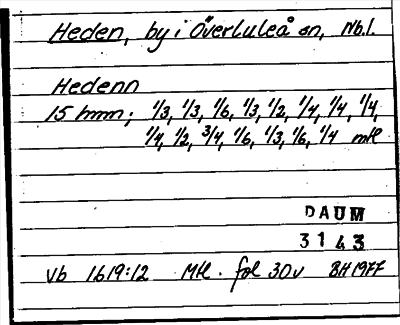 Heden, by i Överluleå sn, Nb.l.
Hedenn
15 hmn; 1/3, 1/3, 1/6, 1/3, 1/2, 1/4, 1/4, 1/4,
1/4, 1/2, 3/4, 1/6, 1/3, 1/6, 1/4 mtl
DAUM
3143
Vb 1619:12 Mtl. fol 30v BH 1977